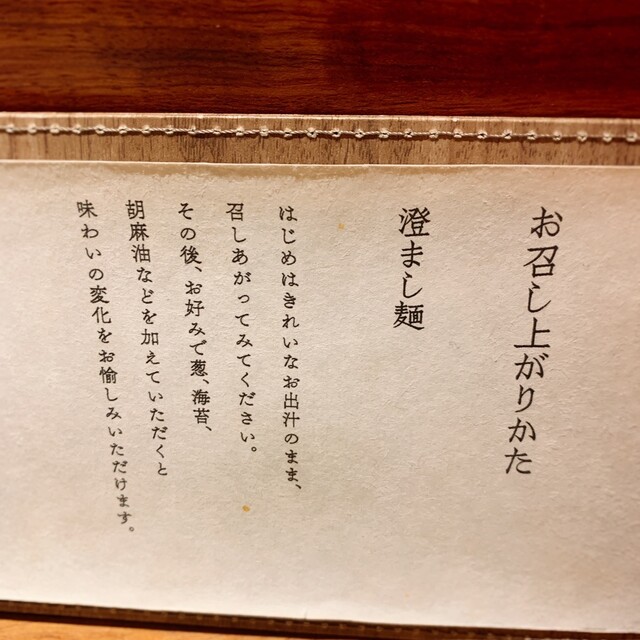 お召し上がりかた
澄まし麺
はじめはきれいなお出汁のまま、
召しあがってみてください。
その後、お好みで葱、海苔、
胡麻油などを加えていただくと
味わいの変化をお愉しみいただけます。